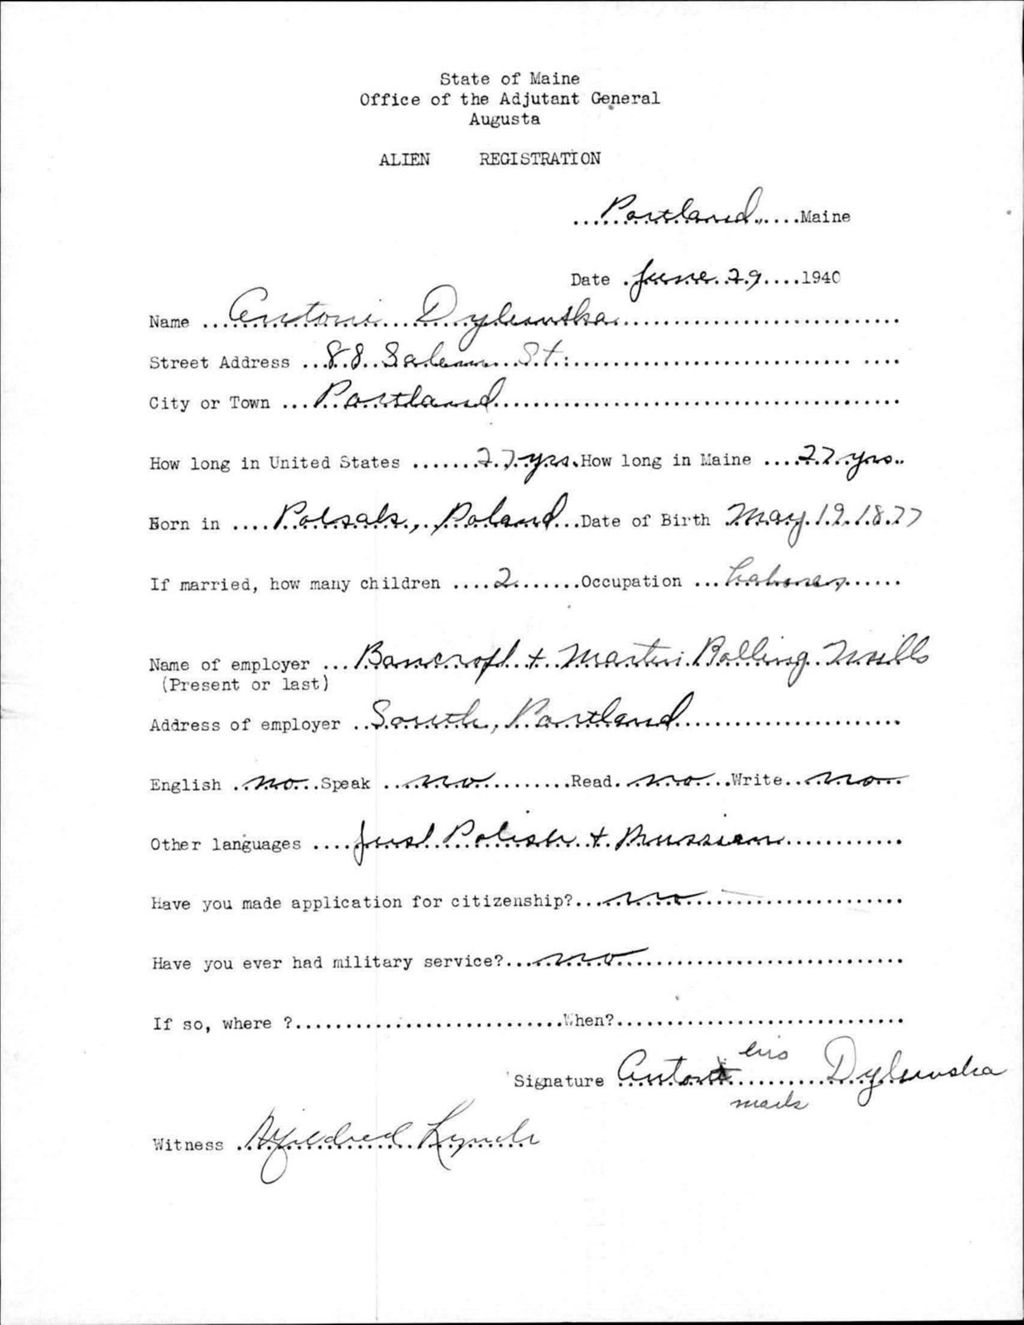 State of Maine
Office of the Adjutant General
Augusta
ALIEN REGISTRATION
Portland, Maine
Date June 29 1940
Name Antoni Dylewska
Street Address 88 Salem St.
City or Town Portland
How long in United States 27 yrs. How long in Maine 27 yrs.
Born in Poland Date of Birth May 19 1877
If married, how many children 2 Occupation Laborer
Name of employer Bancroft + Martin Rolling Mills
(Present or last)
Address of employer South, Portland
English no Speak no Read no Write no
Other languages just Polish + Russian
Have you made application for citizenship? no
Have you ever had military service? no
If so, where ? When?
his
Signature Antoni Dylewska
mark
Witness Mildred Lynch